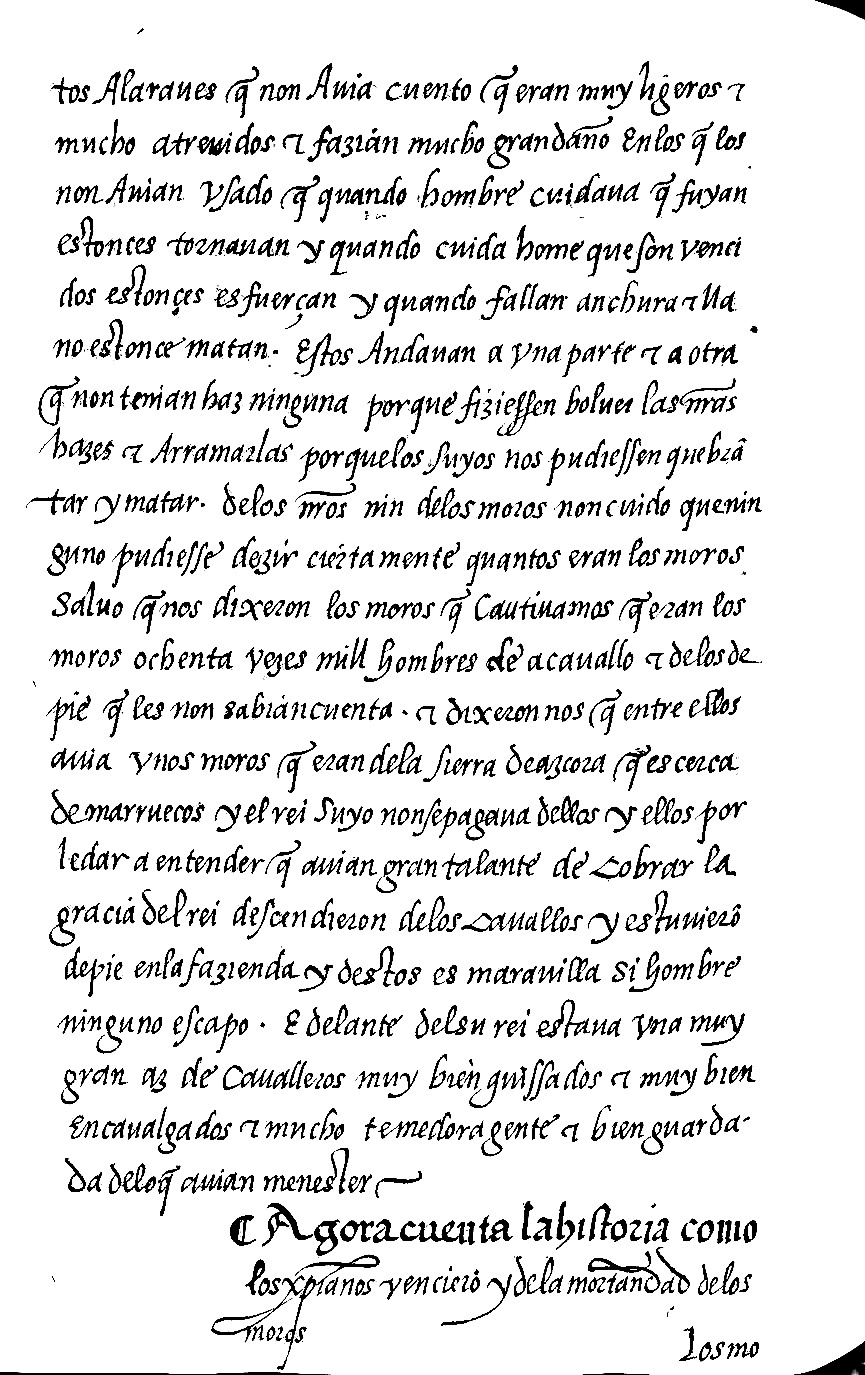 tos Alaraues q̃ non Auia cuento q̃ eran muy ligeros ⁊
mucho atreuidos ⁊ fazian mucho gran daño En los q̃ los
non Auian Vsado q̃ quando hombre cuidaua q̃ fuyan
estonces tornauan y quando cuida home que son venci
dos estonçes esfuerçan y quando fallan anchura ⁊ lla
no estonce matan. Estos Andauan a vna parte ⁊ a otra
q̃ non tenian haz ninguna porque fiziessen boluer las nr̃as
hazes ⁊ Arramarlas porque los suyos nos pudiessen quebrã
tar y matar. de los nr̃os nin de los moros non cuido que nin
guno pudiesse dezir ciertamente quantos eran los moros
Saluo q̃ nos dixeron los moros q̃ Cautiuamos q̃ eran los
moros ochenta vezes mill hombres de a cauallo ⁊ de los de
pie q̃ les non sabian cuenta. ⁊ dixeron nos q̃ entre ellos
auia vnos moros q̃ eran de la sierra de azcora q̃ es cerca
de marruecos y el rei suyo non se pagaua dellos y ellos por
le dar a entender q̃ auian gran talante de Cobrar la
gracia del rei descendieron de los Cauallos y estuuierõ
de pie en la fazienda y destos es marauilla si hombre
ninguno escapo. E delante del su rei estaua vna muy
gran az de Caualleros muy bien guissados ⁊ muy bien
Encaualgados ⁊ mucho temedora gente ⁊ bien guarda-
da de lo q̃ auian menester
¶ Agora cuenta la historia como
los xpianos vencierõ y de la mortandad de los
moros
Los mo